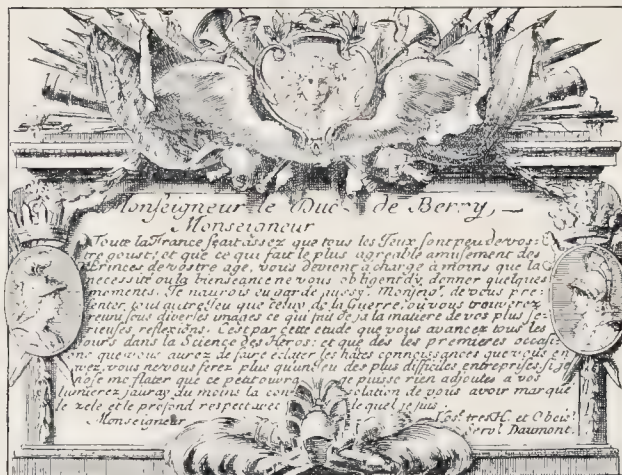 Monseigneur le Duc de Berry,
Monseigneur
Toute la France sçait assez que tous les Jeux sont peu de vos-
tre goust; et que ce qui fait le plus agreable amusement des
Princes de vôstre age, vous devient à charge à moins que la
necessité ou la bienseance ne vous obligent d'y donner quelques
moments. Je n'aurois ôusé de puis, Monseig^r, de vous pre-
senter tout autre Jeu que celui de la Guerre, où vous trouverez
reuni sous diverses images ce qui fait deja la matiere de vos plus se-
rieuses reflexions. C'est par cette etude que vous avancez tous les
jours dans la Science des Heros: et que dès les premieres occasi-
ons que vous aurez de faire éclater les hâtes connoissances que vous en
avez, vous ne vous ferez plus qu'un jeu des plus difficiles entreprises. si je
n'ose me flater que ce petit ouvrage puisse rien adjouter a vos
lumieres j'auray du moins la consolation de vous avoir marqué
le zele et le profond respect avec lequel je suis.
Monseigneur
Vos^e. tres H. et Obeis^t
Serv^r. Daumont.